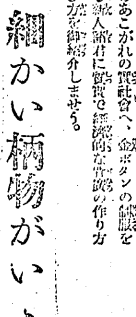 あこがれの實社會へ、金ボタンの制服を
婦人諸君に質實で經濟的な背廣の作り方
を御紹介しませう。
細かい柄物がい